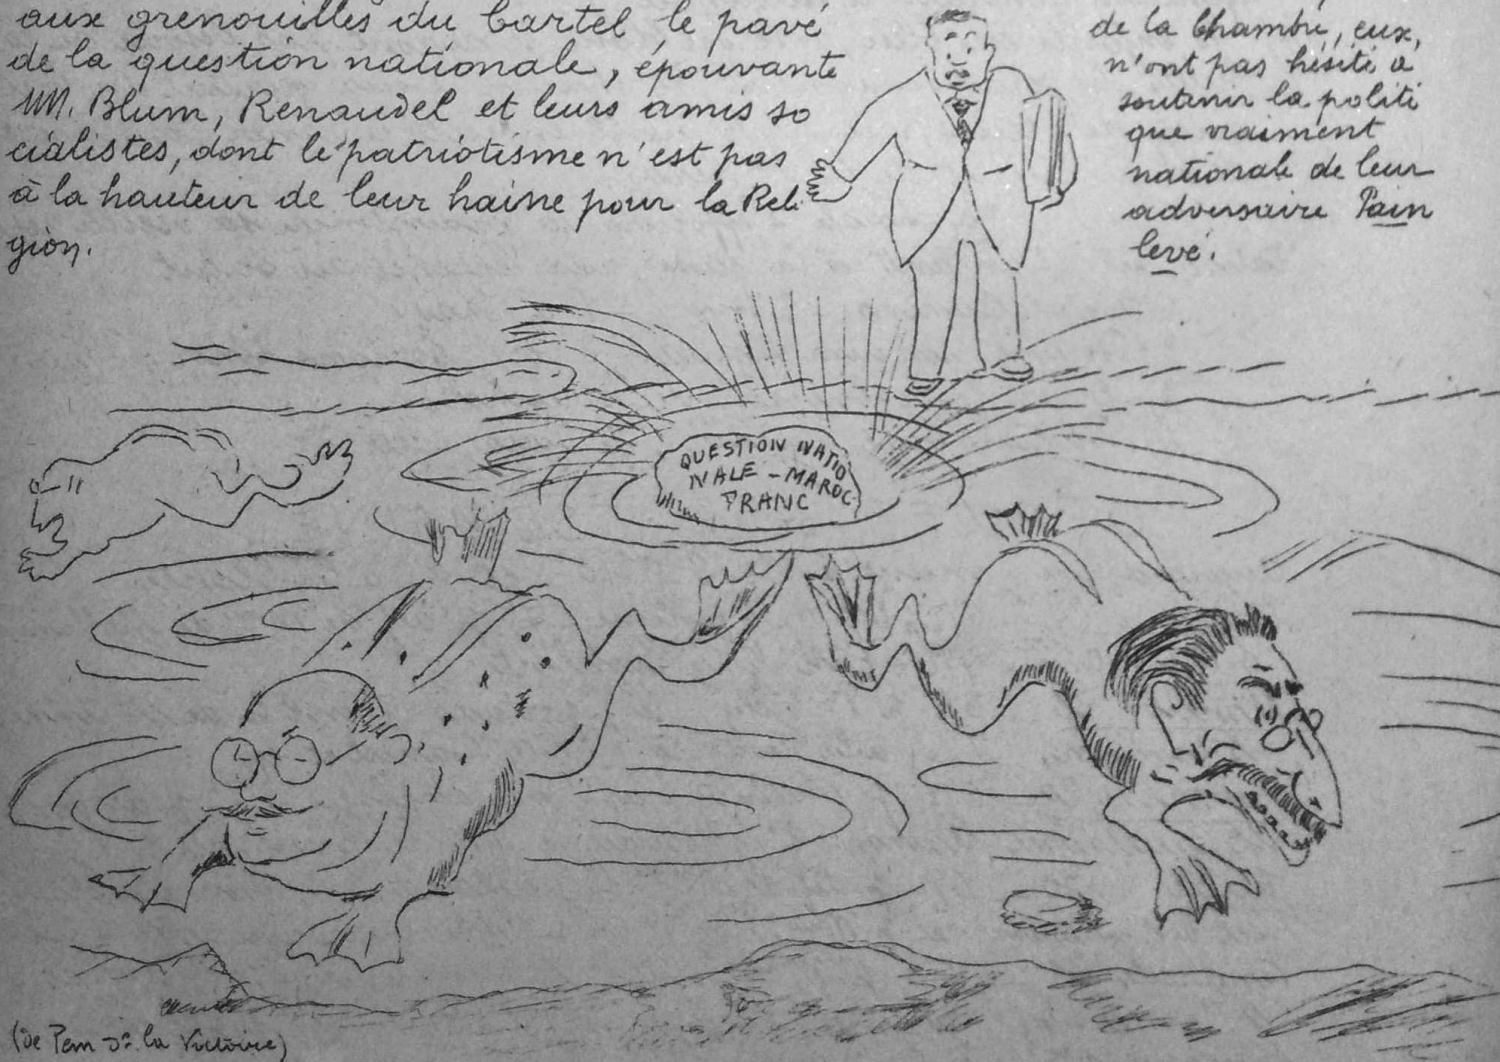 aux grenouilles du Cartel le pavé
de la question nationale, épouvante
MM. Blum, Renaudel et leurs amis so
cialistes, dont le patriotisme n'est pas
à la hauteur de leur haine pour la Reli
gion.
de la Chambre, eux,
n'ont pas hésité à
soutenir la politi
que vraiment
nationale de leur
adversaire Pain
levé.
QUESTION NATIO
NALE - MAROC-
FRANC
(de Pem Ds la Victoire)